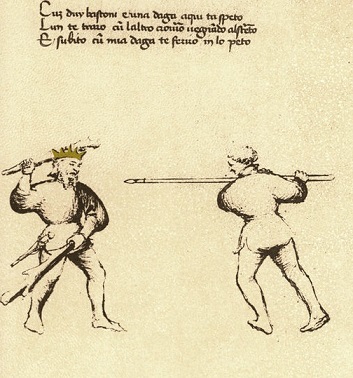 Cuz duy bastoni e una daga aqui ta speto
Lun te trazo cu laltro crovro vegnando al streto
E subito cu mia daga te ferirò in lo peto